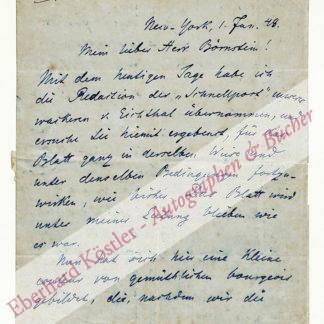 New-York, 1. Jan. 48.
Mein lieber Herr Börnstein!
Mit dem heutigen Tage habe ich
die Redaktion des „Schnellpost" unseres
wackeren v. Eichthal übernommen, und
ersuche Sie hiemit ergebenst, für das
Blatt ganz in derselben Weise und
unter denselben Bedingungen fortzu-
wirken, wie bisher. Das Blatt wird
unter meiner Leitung bleiben wie
es war.
Nun hat sich hier eine kleine
von gemüthlichen bourgeois
gebildet, die, nachdem wir die
Eberhard Köstler - Autographen & Bücher